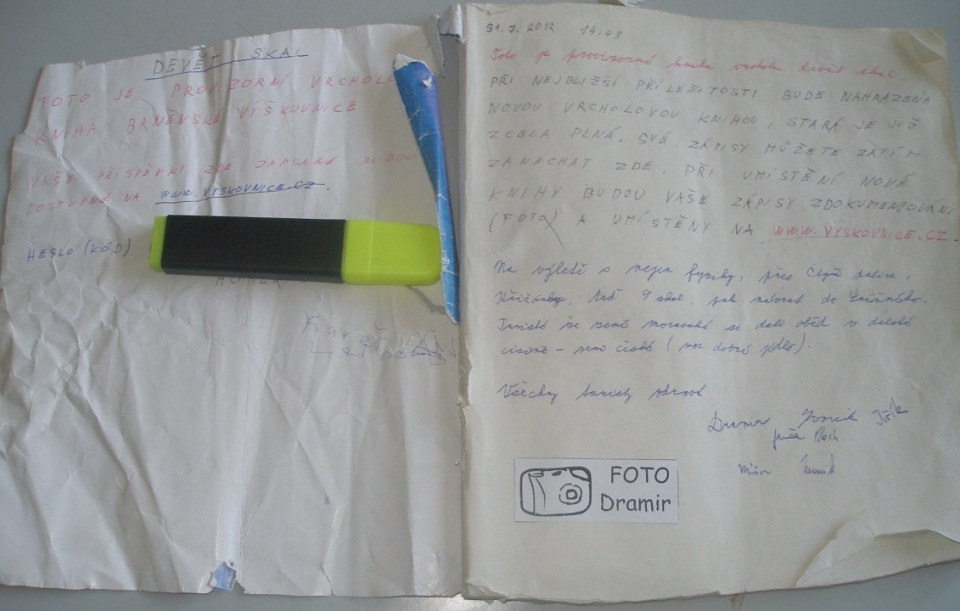 DEVĚT SKAL
TOTO JE PROVIZORNÍ VRCHOLO
KNIHA BRNĚNSKÉ VÝŠKOVNICE
VAŠE PŘÍSPĚVKY ZDE ZAPSANÉ BUDOU
DOSTUPNÉ NA WWW.VYSKOVNICE.CZ.
HESLO (KÓD)
31.7. 2012 14:43
Toto je provizorní kniha vrcholu Devět skal.
PŘI NEJBLIŽŠÍ PŘÍLEŽITOSTI BUDE NAHRAZENA
NOVOU VRCHOLOVOU KNIHOU, STARÁ JE JIŽ
ZCELA PLNÁ. SVÉ ZÁPISY MŮŽETE ZATÍM
ZANACHAT ZDE. PŘI UMÍSTĚNÍ NOVÉ
KNIHY BUDOU VAŠE ZÁPISY ZDOKUMENTOVÁNY
(FOTO) A UMÍSTĚNY NA WWW.VYSKOVNICE.CZ.
Na výletě s nejen fyziky, přes Čtyři palice,
9 skal, pak návrat do
si dali oběd v
– není česká (moc dobré jídlo).
Všechny turisty zdraví
Dramir
FOTO
Dramir